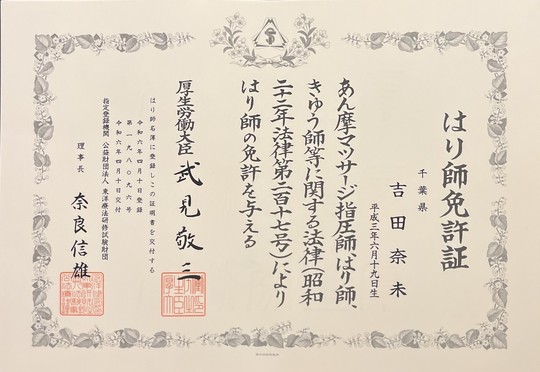 はり師免許証
千葉県
吉田奈未
平成三年六月十九日生
あん摩マッサージ指圧師、はり師、
きゅう師等に関する法律(昭和
二十二年法律第二百十七号)により
はり師の免許を与える
厚生労働大臣 武見敬三
はり師名簿に登録しこの証明書を交付する
令和六年四月十日登録
第一九八〇九六号
令和六年四月十日交付
指定登録機関 公益財団法人 東洋療法研修試験財団
理事長 奈良信雄